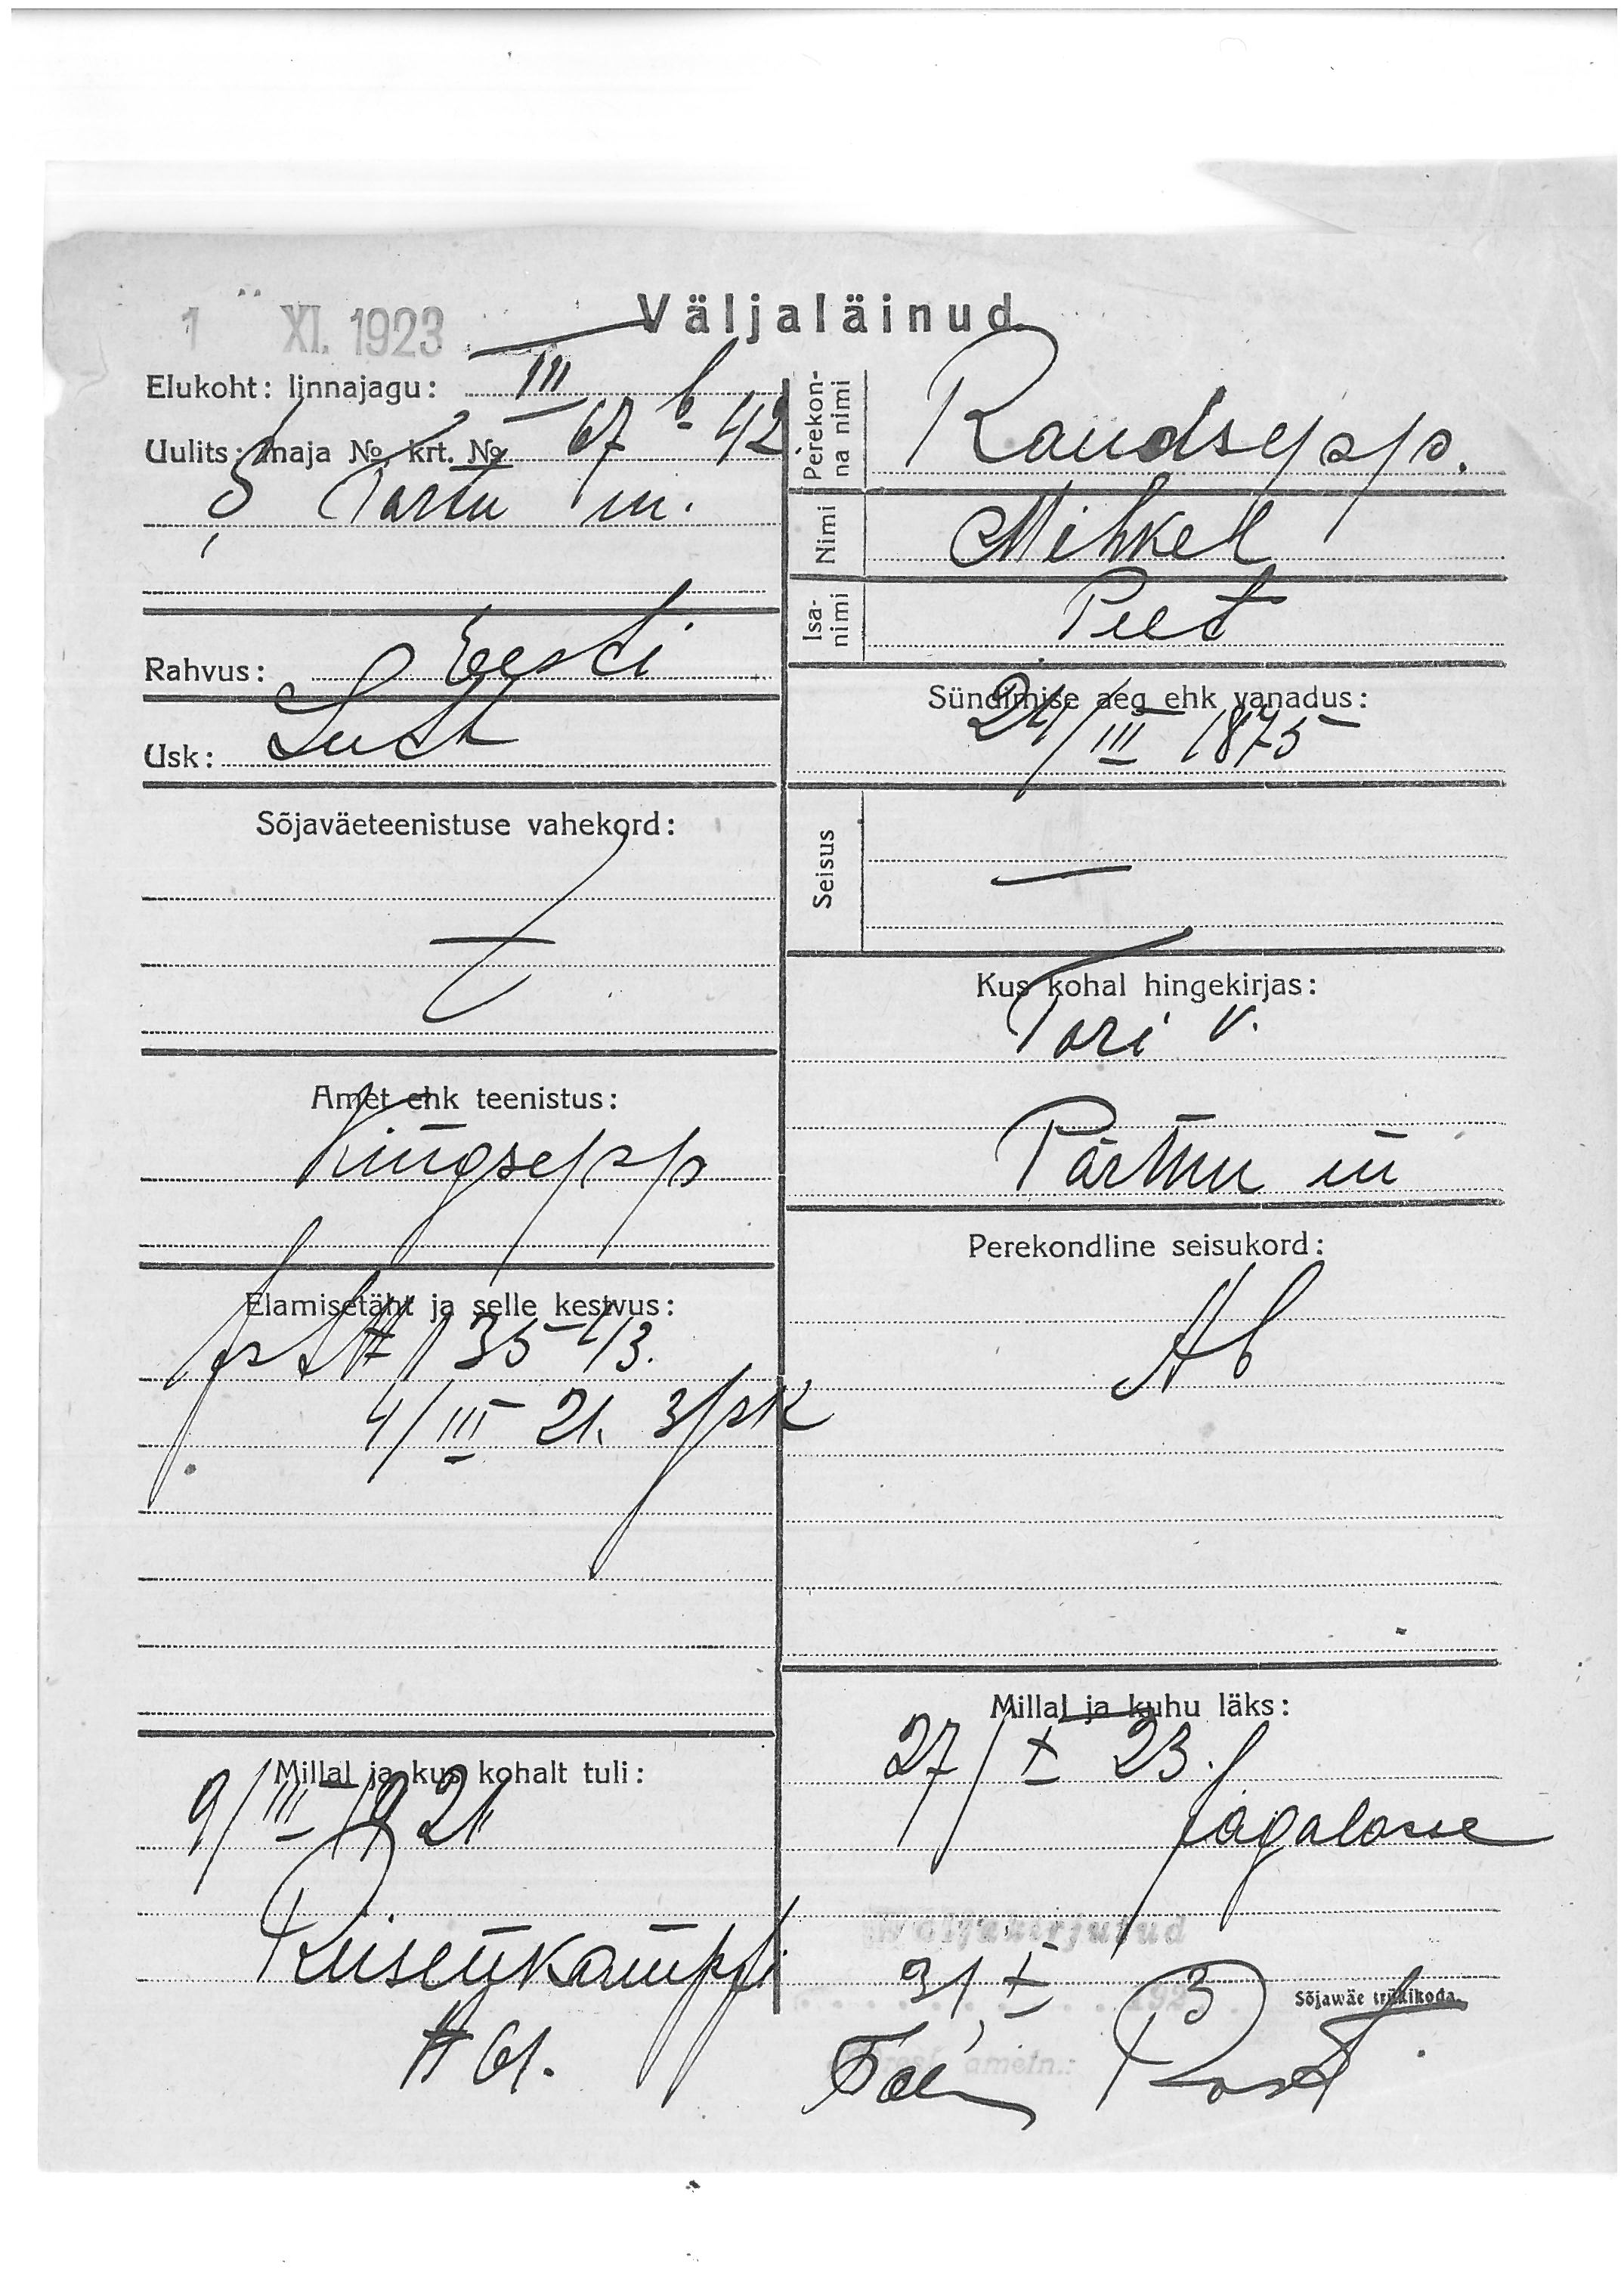 1 XI. 1923
Väljaläinud
Elukoht: linnajagu: III
Uulits: maja № krt. № 67 b - 42
S. Tartu m.
Perekon-
na nimi
Raudsepp.
Nimi Mihkel
Isa-
nimi
Peet
Rahvus: Eesti
Usk: Luth
Sündimise aeg ehk vanadus:
24/III 1875
Sõjaväeteenistuse vahekord:
—
Seisus
—
Kus kohal hingekirjas:
Tori v.
Pärnu m
Amet ehk teenistus:
Kingsepp
Perekondline seisukord:
Ab
Elamisetäht ja selle kestvus:
# 3543.
4/III 21. 3
Millal ja kus kohalt tuli:
9/III 1921
Riisenkampfi
# 61.
Millal ja kuhu läks:
27/X 23.
Jägalasse
Väljakirjutud
31, X 192 3
ametn.:
Sõjawäe trükikoda.